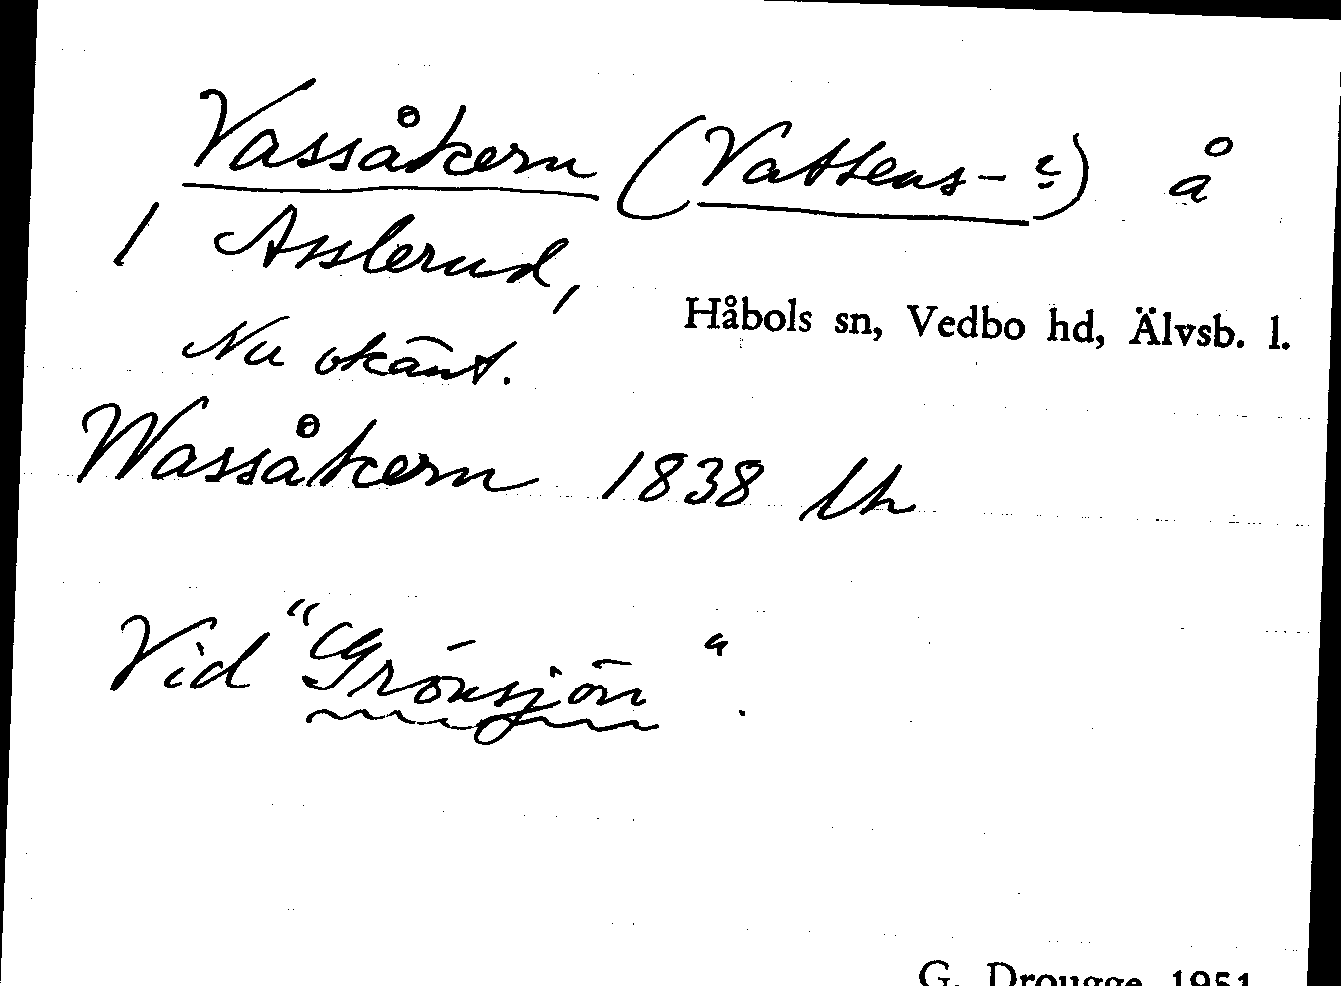 Vassåkern (Vattens- ?) å
1 Asslerud,
Håbols sn, Vedbo hd, Älvsb. l.
Nu okänt.
Wassåkern 1838 lh
Vid "Grönsjön".
G. Drougge 1951